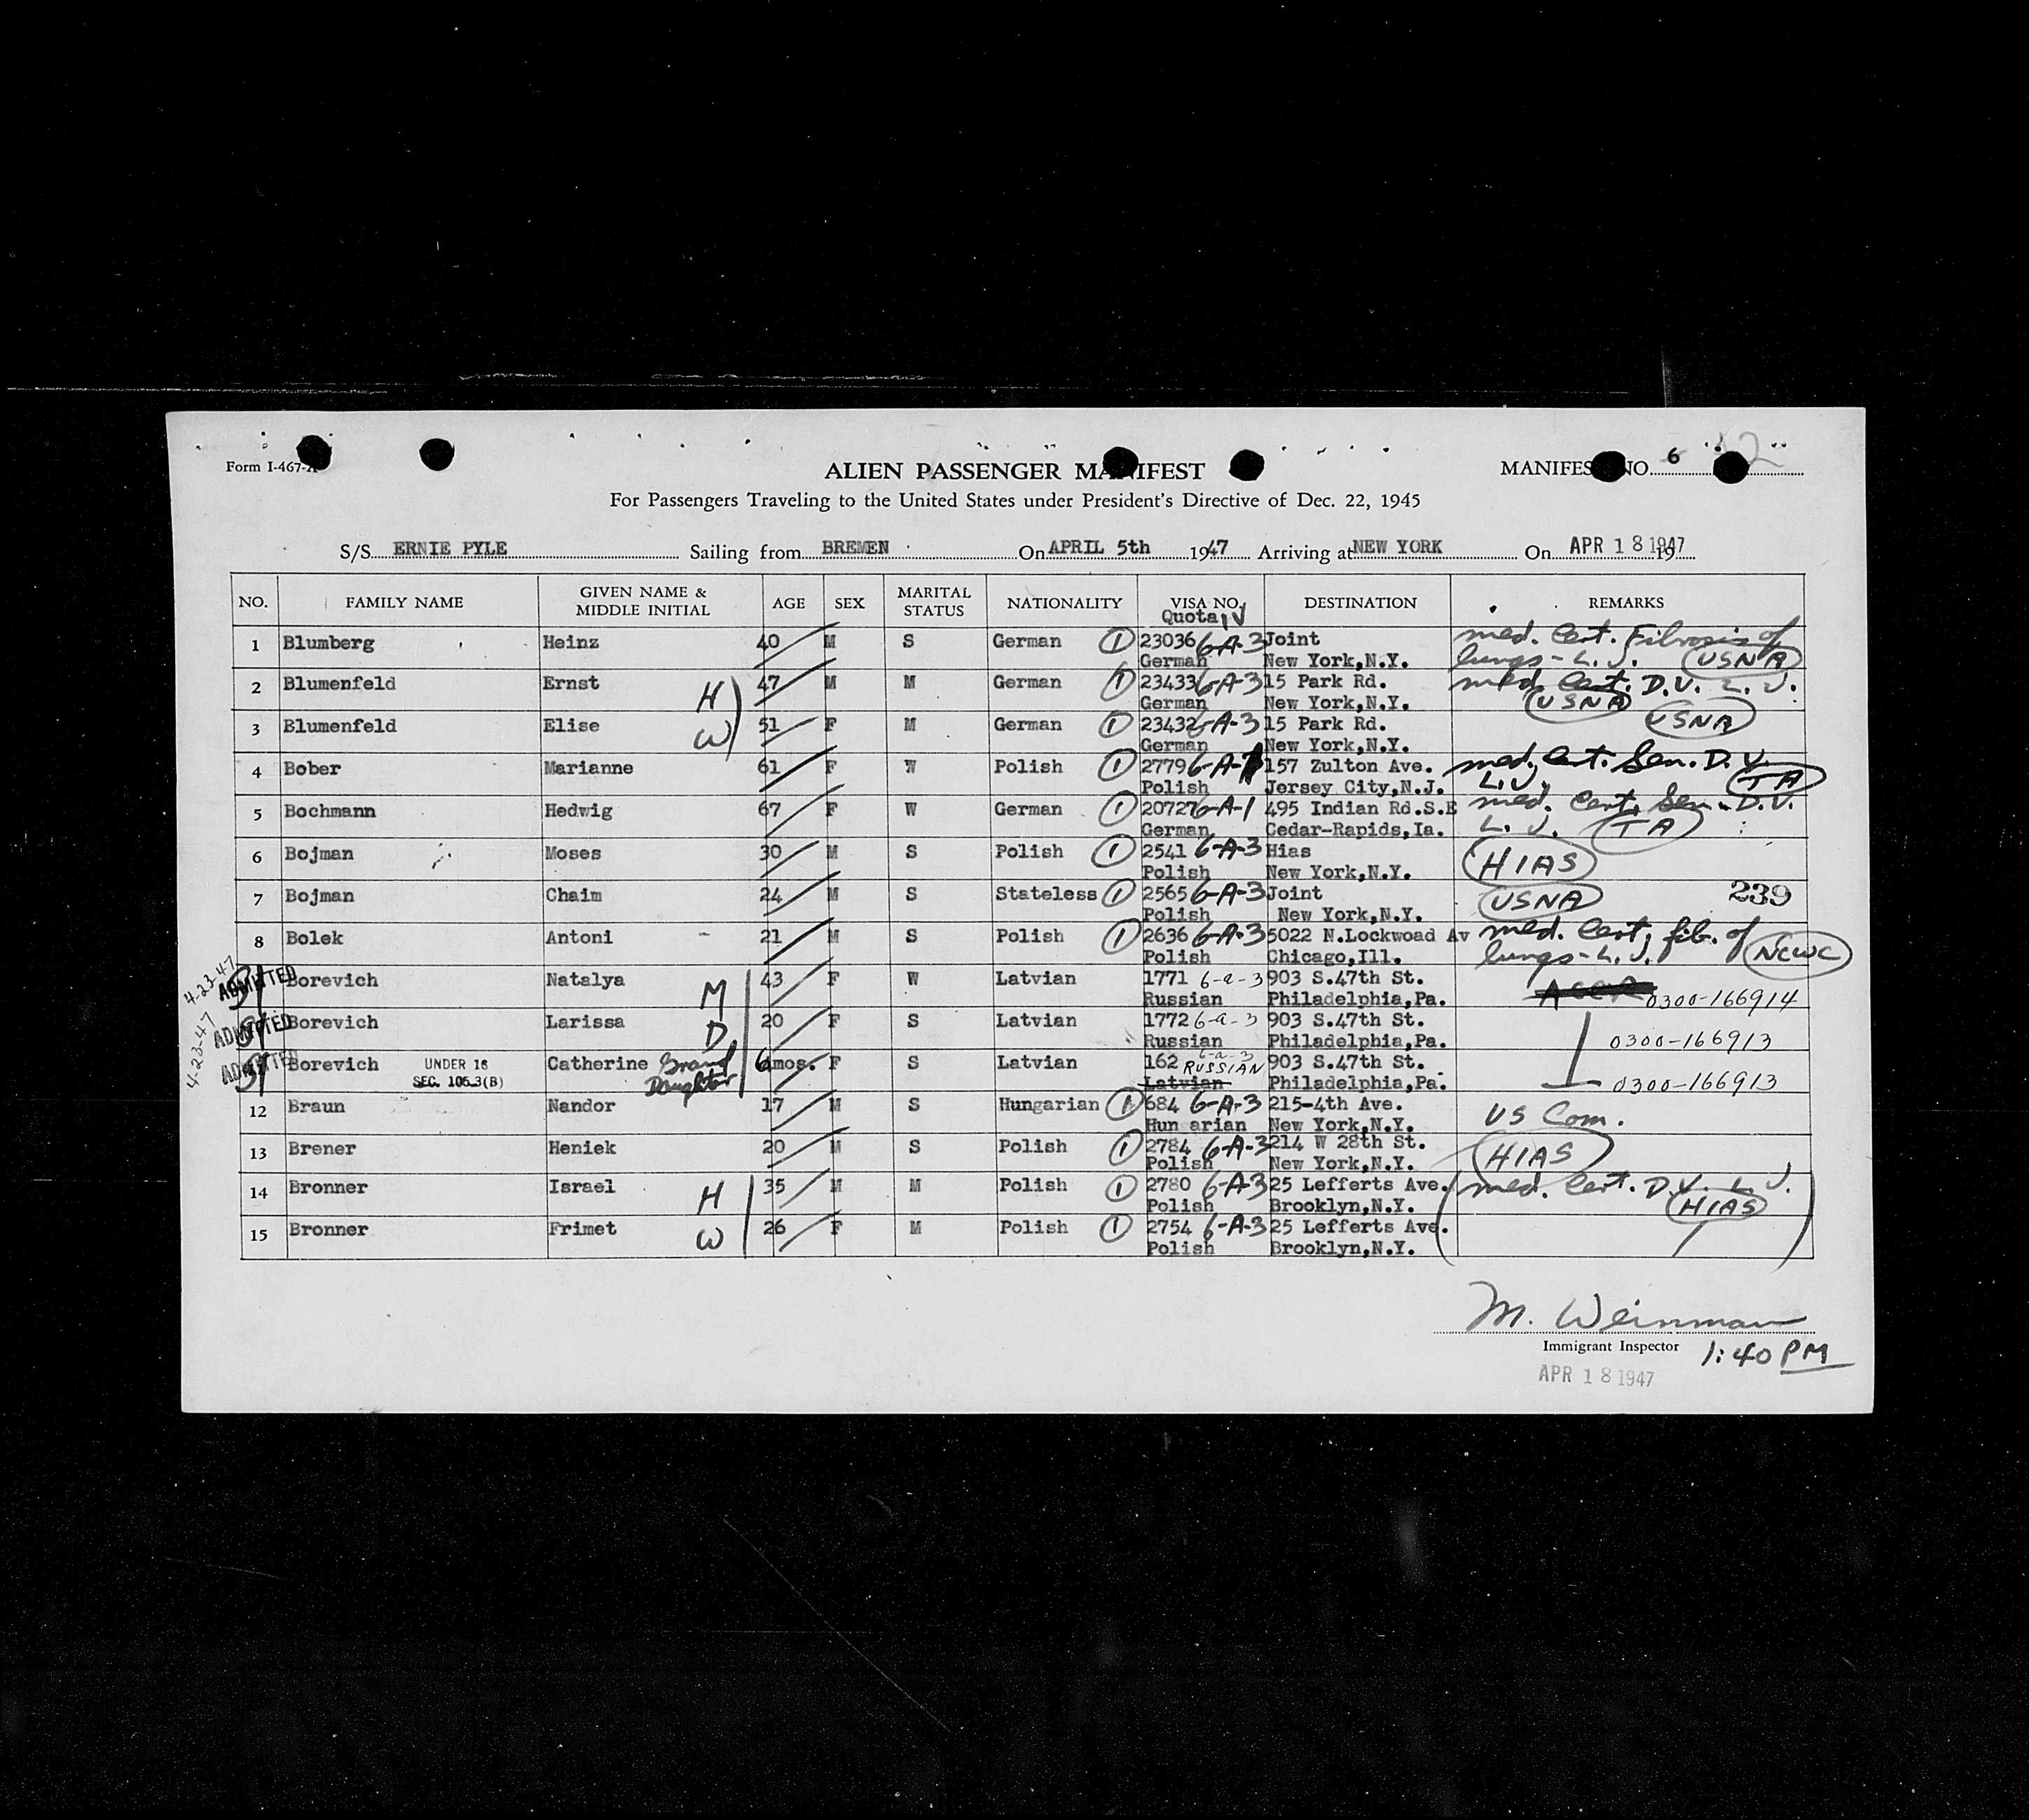 Form I-467-A
ALIEN PASSENGER MANIFEST
MANIFEST NO. 6
For Passengers Traveling to the United States under President's Directive of Dec. 22, 1945
S/S ERNIE PYLE Sailing from BREMEN On APRIL 5th 1947 Arriving at NEW YORK On APR 18 1947 19
NO. FAMILY NAME GIVEN NAME & MIDDLE INITIAL AGE SEX MARITAL STATUS NATIONALITY VISA NO. Quota IV DESTINATION REMARKS
1 Blumberg Heinz 40 M S German 1 23036 6-A-3 Joint med. Cert. Fibrosis of
German New York,N.Y. lungs - L.J. USNA
2 Blumenfeld Ernst H 47 M M German 1 23433 6-A-3 15 Park Rd. med. Cert. D.V. L.J.
German New York,N.Y. USNA
3 Blumenfeld Elise W 51 F M German 1 23432 6-A-3 15 Park Rd. USNA
German New York,N.Y.
4 Bober Marianne 61 F W Polish 1 2779 6-A- 157 Zulton Ave. med. Cert. Sen. D.V.
Polish Jersey City,N.J. L.J. TA
5 Bochmann Hedwig 67 F W German 1 20727 6-A-1 495 Indian Rd.S.E med. Cert. Sen. D.V.
German Cedar-Rapids,Ia. L.J. TA
6 Bojman Moses 30 M S Polish 1 2541 6-A-3 Hias HIAS
Polish New York,N.Y.
7 Bojman Chaim 24 M S Stateless 1 2565 6-A-3 Joint USNA 239
Polish New York,N.Y.
8 Bolek Antoni - 21 M S Polish 1 2636 6-A-3 5022 N.Lockwoad Av med. Cert. fib. of
Polish Chicago,Ill. lungs - L.J. NCWC
4-23-47 ADMITTED Borevich Natalya M 43 F W Latvian 1771 6-a-3 903 S.47th St.
Russian Philadelphia,Pa. 0300-166914
4-23-47 ADMITTED Borevich Larissa D 20 F S Latvian 1772 6-a-3 903 S.47th St.
Russian Philadelphia,Pa. 0300-166913
ADMITTED Borevich UNDER 16 SEC. 105.3(B) Catherine Grand Daughter 6mos. F S Latvian 162 6-a-3 RUSSIAN 903 S.47th St.
Latvian Philadelphia,Pa. 0300-166913
12 Braun Nandor 17 M S Hungarian 1 684 6-A-3 215-4th Ave. US Com.
Hun arian New York,N.Y.
13 Brener Heniek 20 M S Polish 1 2784 6-A-3 214 W 28th St. HIAS
Polish New York,N.Y.
14 Bronner Israel H 35 M M Polish 1 2780 6-A-3 25 Lefferts Ave. med. Cert. D.V. L.J.
Polish Brooklyn,N.Y. HIAS
15 Bronner Frimet W 26 F M Polish 1 2754 6-A-3 25 Lefferts Ave.
Polish Brooklyn,N.Y.
M. Weinman
Immigrant Inspector 1:40 PM
APR 18 1947